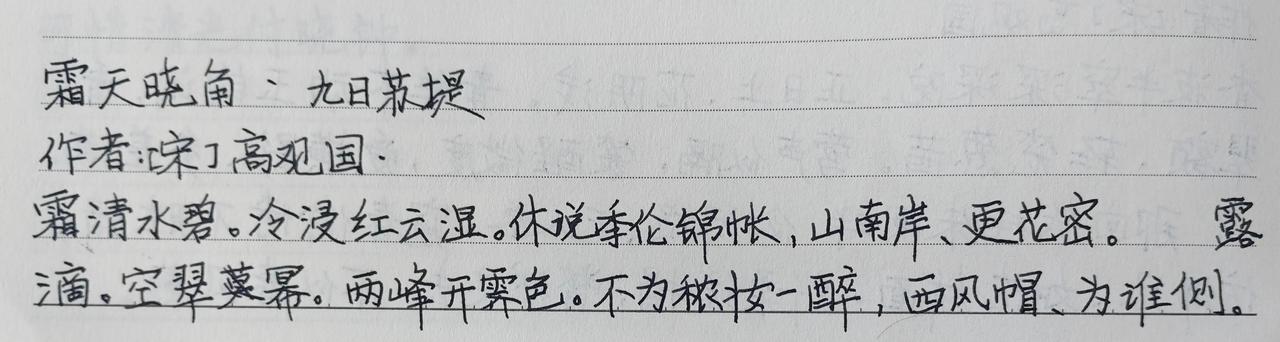 霜天晓角·九日苏堤
作者:[宋]高观国.
霜清水碧。冷浸红云湿。休说季伦锦帐,山南岸、更花密。 露
滴。空翠幂。两峰开霁色。不为秾妆一醉,西风帽、为谁侧。